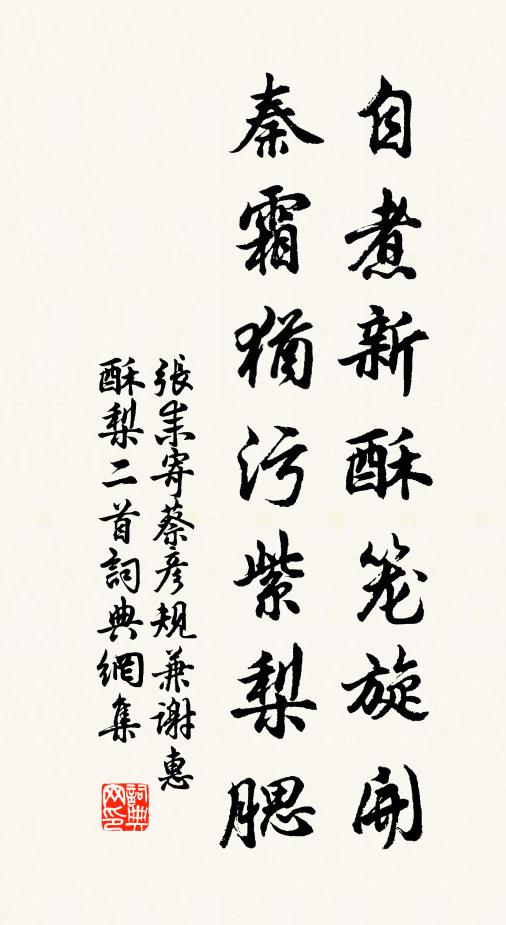 自煮新酥笼旋開
秦霜猶污紫梨腮
張耒寄蔡彦規兼谢惠
酥梨二首詞典網集
詞典
网印